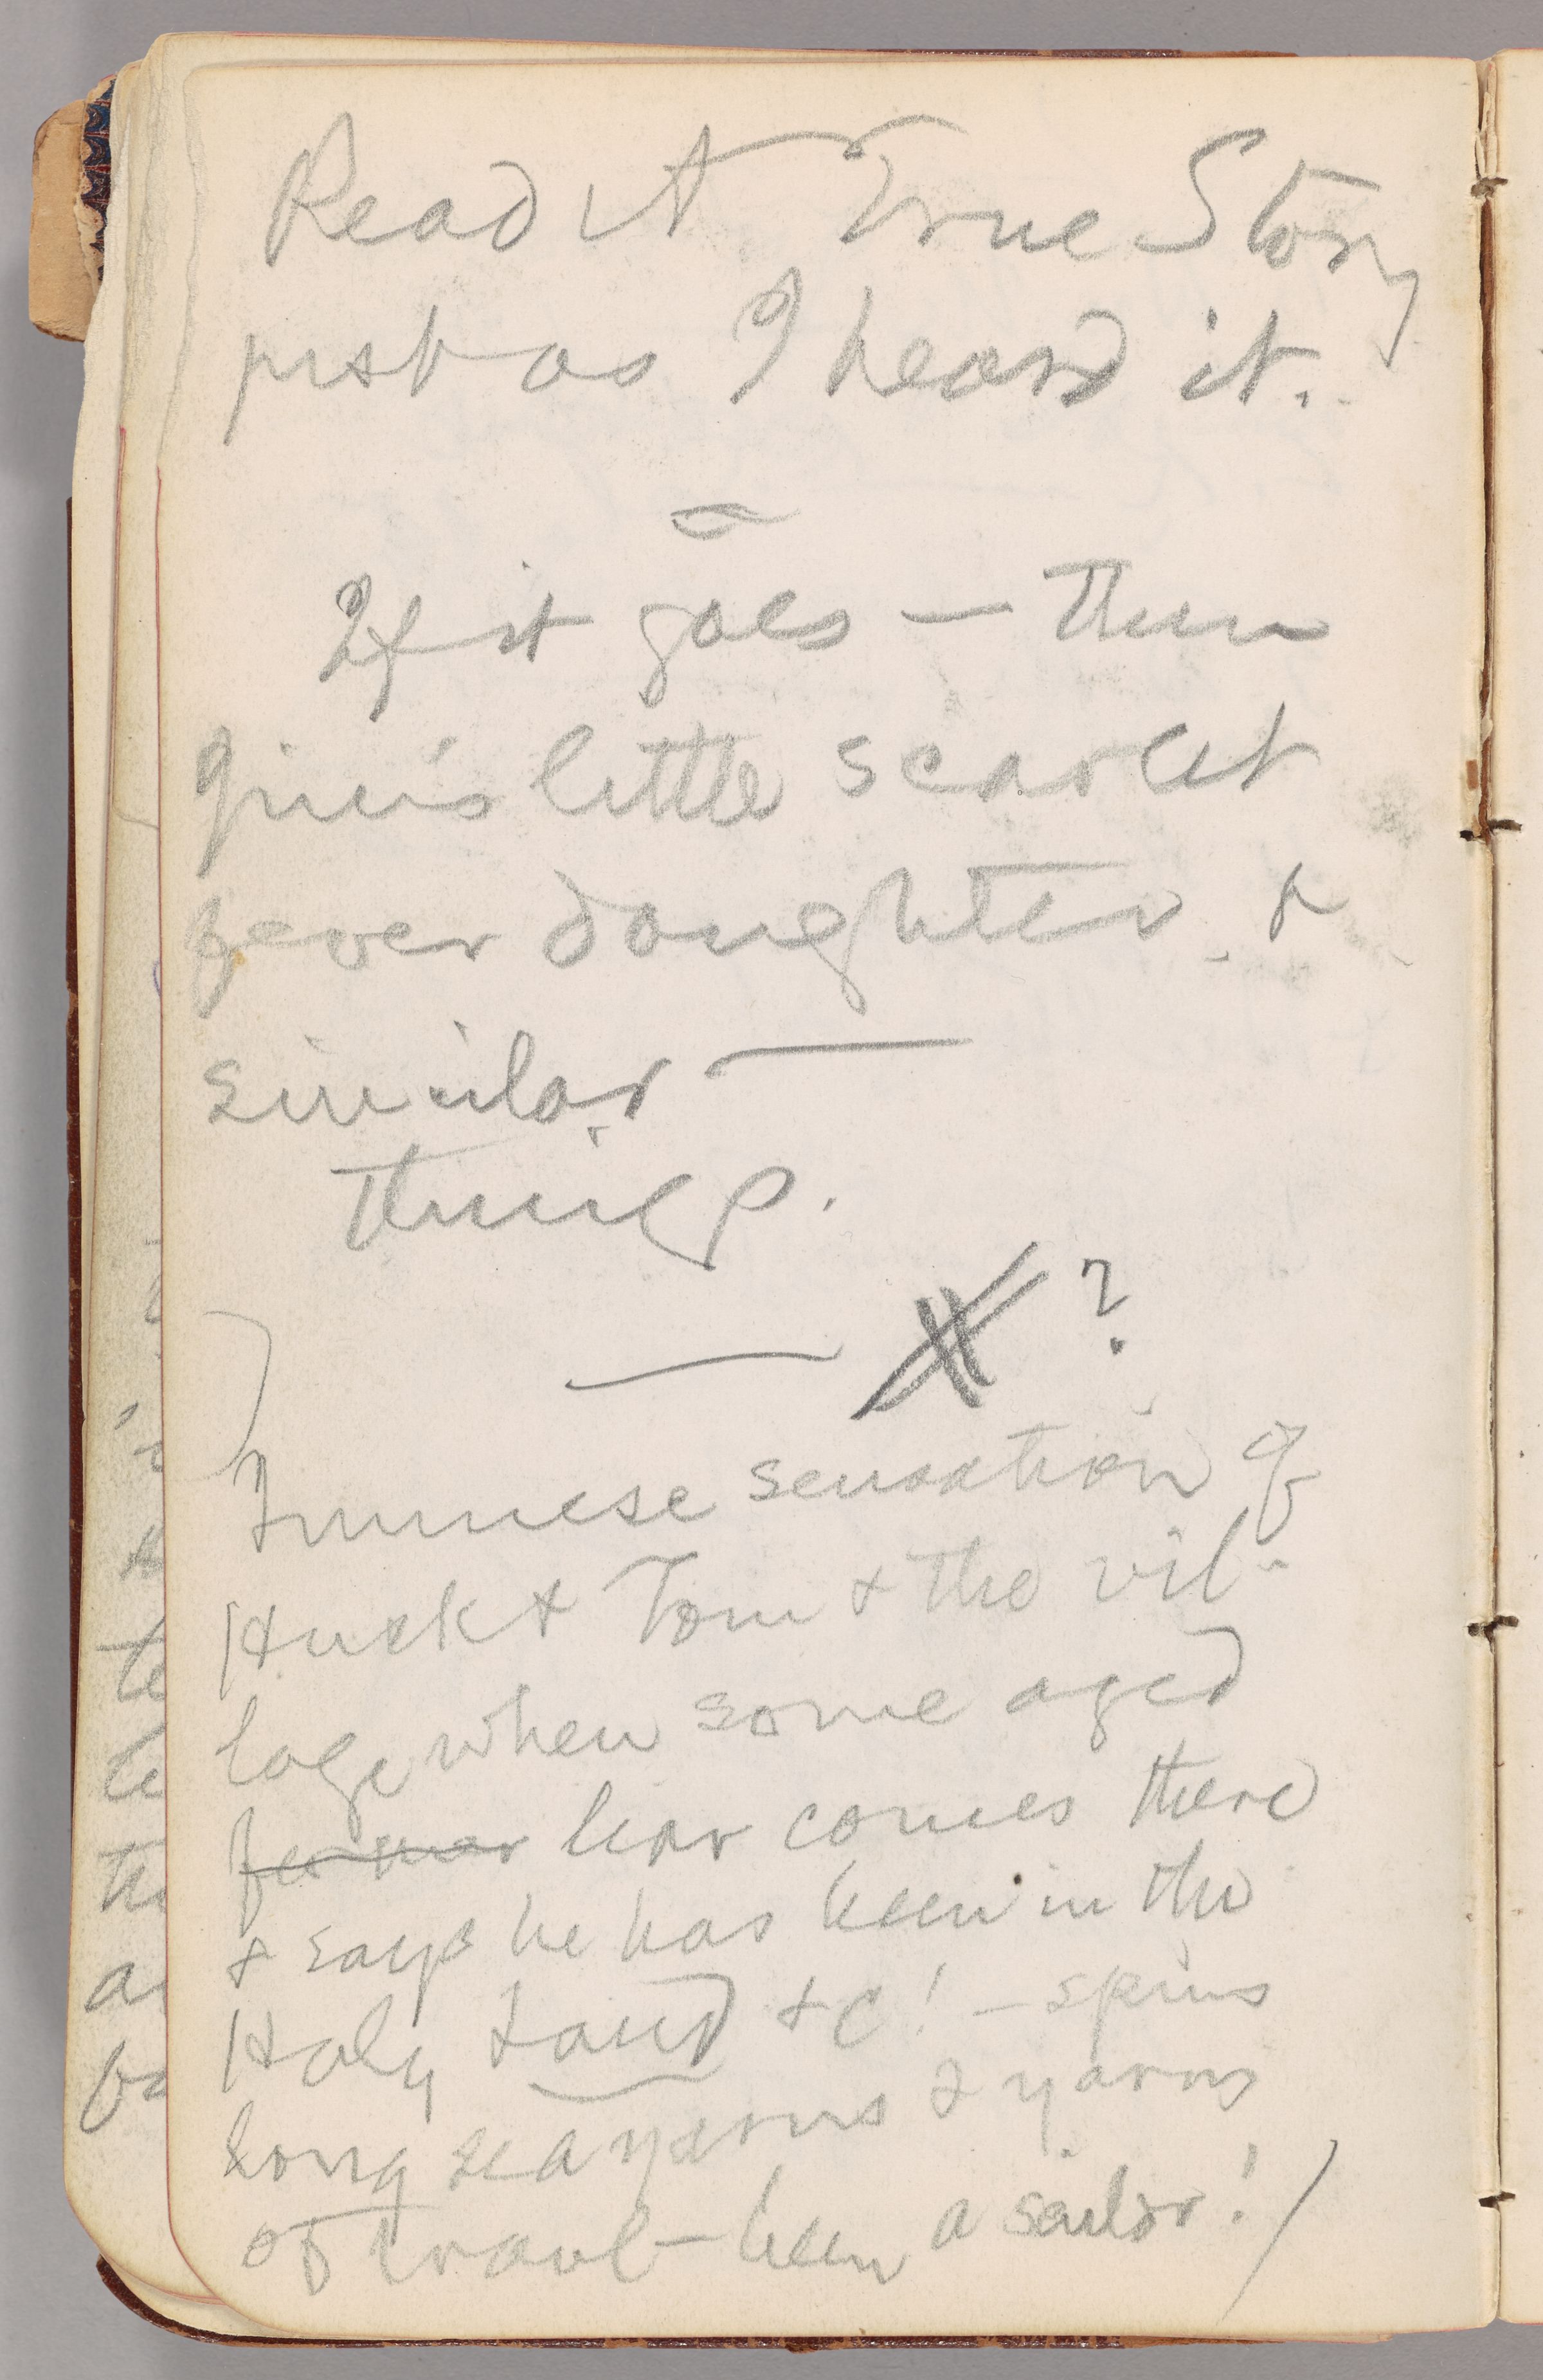 Read A True Story
just as I heard it.
If it goes — then
Jim's little scarlet
fever daughter, &
similar —
things.
— X ?
Immese sensation of
Huck & Tom & the vil-
lage when some aged
former liar comes there
& says he has been in the
Holy Land &c! — spins
long sea yarns & yarns
of travl — been a sailor!